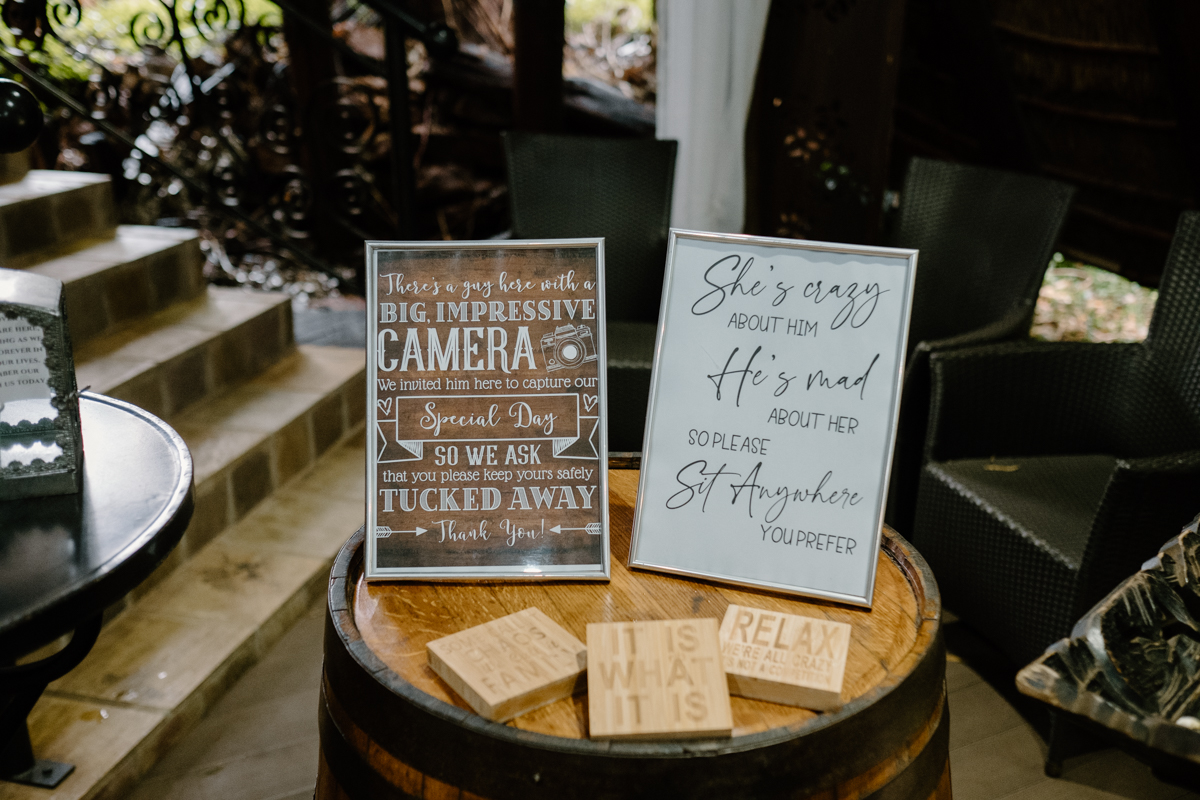 There's a guy here with a
BIG, IMPRESSIVE
CAMERA
We invited him here to capture our
Special Day
SO WE ASK
that you please keep yours safely
TUCKED AWAY
Thank You!
She's crazy
ABOUT HIM
He's mad
ABOUT HER
SO PLEASE
Sit Anywhere
YOU PREFER
CHAOS
FAMILY
IT IS
WHAT
IT IS
RELAX
WE'RE ALL CRAZY
IT'S NOT A COMPETITION
ARE HERE,
AS WE
OUR LIVES.
US TODAY